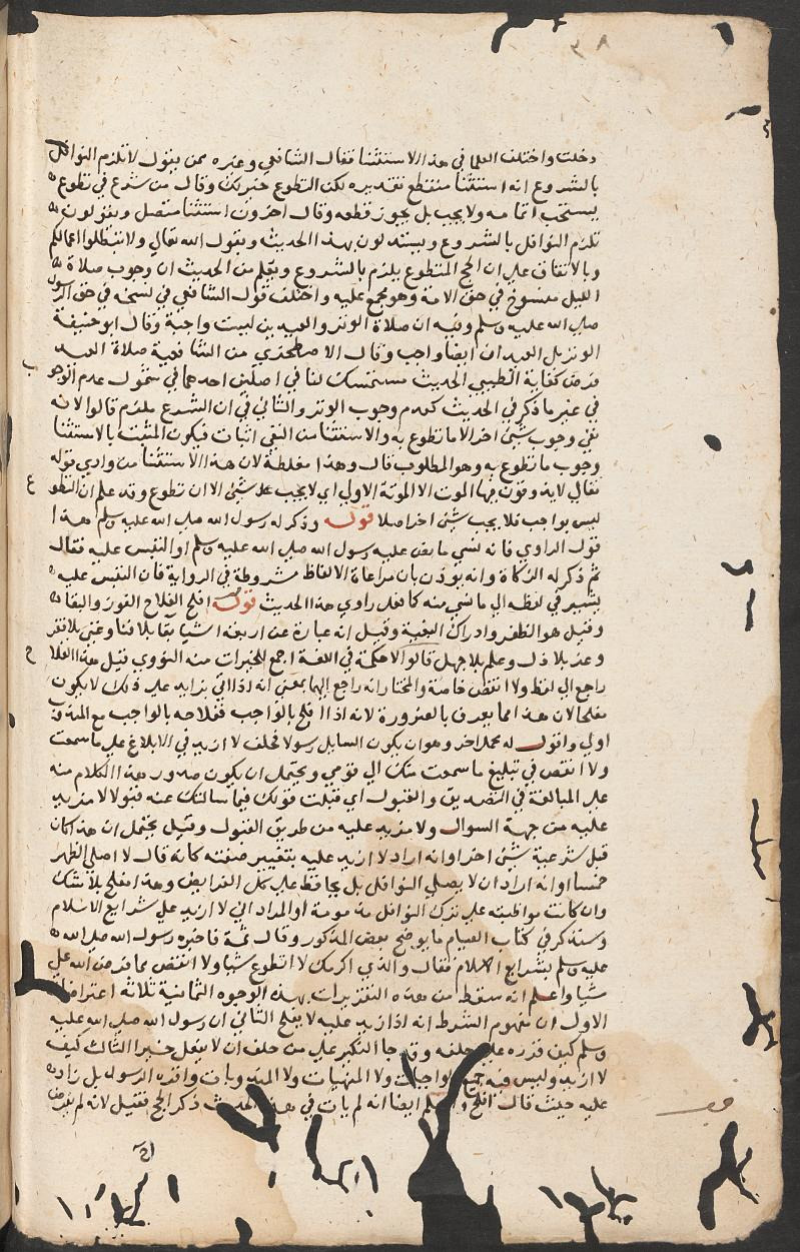 ٣٨
دخلت واختلف العلما في هذا الاستثنا فقال الشافعي وغيره ممن يقول لا تلزم النوافل
بالشروع انه استثنا منقطع تقديره لكن التطوع خير لك وقال من شرع في تطوع
يستحب اتمامه ولا يجب بل يجوز قطعه وقال اخرون استثنا متصل ويقولون
تلزم النوافل بالشروع ويستدلون بهذا الحديث وبقول الله تعالي ولا تبطلوا اعمالكم
وبالاتفاق علي ان الحج المتطوع يلزم بالشروع ويعلم من الحديث ان وجوب صلاة
الليل منسوخ في حق الامة وهو مجمع عليه واختلف قول الشافعي في نسخه في حق الرسول
صلي الله عليه وسلم وفيه ان صلاة الوتر والعيدين ليست واجبة وقال ابو حنيفة
الوتر بل العيدان ايضا واجب وقال الاصطخري من الشافعية صلاة العيد
فرض كفاية الطيبي الحديث مستمسك لنا في اصلين احدهما في شمول عدم الوجوب
في غير ما ذكر في الحديث كعدم وجوب الوتر والثاني في ان الشرع ملزم قالوا لانه
نفي وجوب شئ اخر الا ما تطوع به والاستثنا من النفي اثبات فيكون المثبت بالاستثنا
وجوب ما تطوع به وهو المطلوب قال وهذا مغلطة لان هذا الاستثنا من وادي قوله
تعالي لا يذوقون فيها الموت الا الموتة الاولي اي لا يجب عليك شئ الا ان تطوع وقد علم ان التطوع
ليس بواجب فلا يجب شئ اخر اصلا قوله وذكر له رسول الله صلي الله عليه وسلم هذا
قول الراوي فانه نسي ما نص عليه رسول الله صلي الله عليه وسلم او التبس عليه فقال
ثم ذكر له الزكاة وانه يوذن بان مراعاة الالفاظ مشروطة في الرواية فان التبس عليه
يشير في لفظه الي ما نسي منه كما فعل راوي هذا الحديث قوله افلح الفلاح الفوز والبقا
وقيل هو الظفر وادراك البغية وقيل انه عبارة عن اربعة اشيا بقا بلا فنا وغني بلا فقر
وعز بلا ذل وعلم بلا جهل قالوا لا كلمة في اللغة اجمع للخيرات منه النووي قيل هذا الفلاح
راجع الي لفظ ولا انقص خاصة والمختار انه راجع اليهما بمعني انه اذا اتي بزايد علي ذلك لا يكون
مفلحا لان هذا مما يعرف بالضرورة لانه اذا افلح بالواجب ففلاحه بالواجب مع المندوب
اولي واقول له محمل اخر وهو ان يكون السايل رسولا فحلف لا ازيد في الابلاغ علي ما سمعت
ولا انقص في تبليغ ما سمعت منك الي قومي ويحتمل ان يكون صدور هذا الكلام منه
علي المبالغة في التصديق والقبول اي قبلت قولك فيما سالتك عنه قبولا لا مزيد
عليه من جهة السوال ولا مزيد عليه من طريق القبول وقيل يحتمل ان هذا كان
قبل شرعية شئ اخر او انه اراد لا ازيد عليه بتغيير صفته كانه قال لا اصلي الظهر
خمسا او انه اراد ان لا يصلي النوافل بل يحافظ علي كل الفرايض وهذا مفلح بلا شك
وان كانت مواظبته علي ترك النوافل مذمومة او المراد اني لا ازيد علي شرايع الاسلام
وسنذكر في كتاب الصيام ما يوضح بعض المذكور وقال ثمة فاخبره رسول الله صلي الله
عليه وسلم بشرايع الاسلام فقال والذي اكرمك لا اتطوع شيا ولا انقص مما فرض الله علي
شيا واعلم انه سقط من هذه التقريرات بهذه الوجوه الثمانية ثلاثة اعتراضات
الاول ان مفهوم الشرط انه اذا زيد عليه لا يفلح الثاني ان رسول الله صلي الله عليه
وسلم كيف قرره علي حلفه وقد جا النكير علي من حلف ان لا يفعل خيرا الثالث كيف
لا ازيد وليس فيه جميع الواجبات ولا المنهيات ولا المندوبات واقره الرسول بل زاد
عليه حيث قال افلح ايضا انه لم يات في هذا الحديث ذكر الحج فقيل لانه لم يفرض